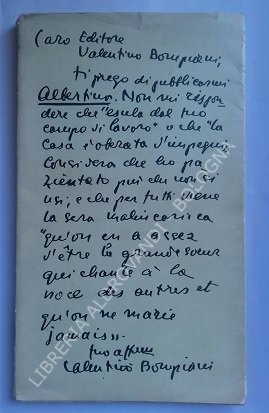 Caro Editore
Valentino Bompiani,
ti prego di pubblicarmi
Albertina. Non mi rispon
dere che "esula dal tuo
campo di lavoro" o che "la
casa è oberata d'impegni.
Considera che ho pa
zientato più che non si
usi, e che per tutti viene
la sera malinconica
"qu'on en a assez
d'être la grande soeur
qui chante à la
noce des autres et
qu'on ne marie
jamais".
tuo affmo
Valentino Bompiani
LIBRERIA ALBERGHINI BOLOGNA